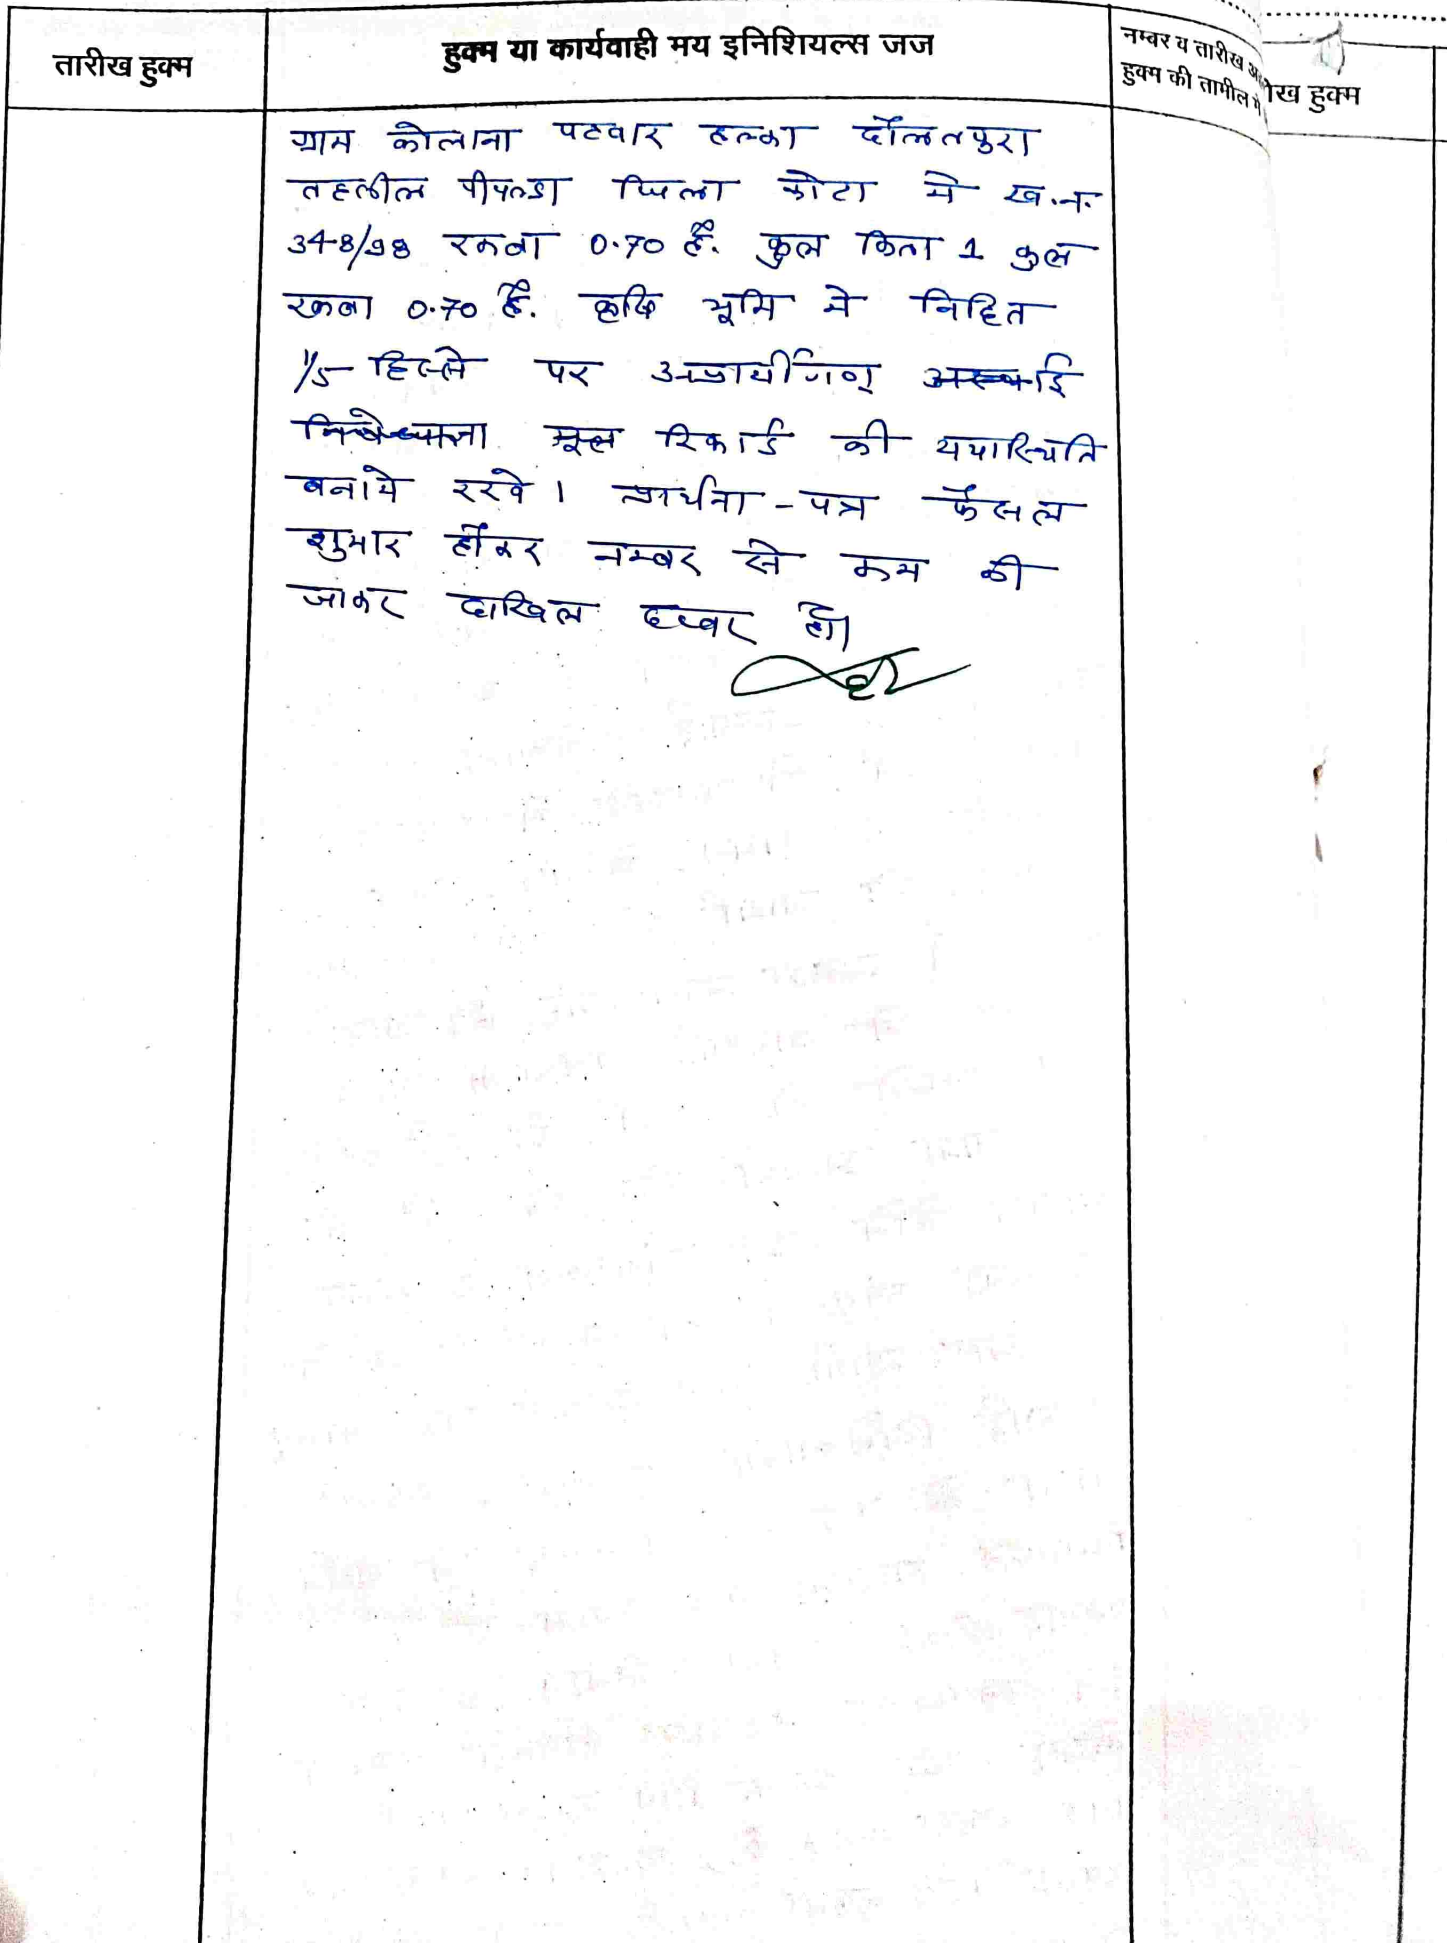 तारीख हुक्म
हुक्म या कार्यवाही मय इनिशियल्स जज
नम्बर व तारीख
हुक्म की तामील
हुक्म
ग्राम कोलाना पटवार हल्का दौलतपुरा
तहसील पीपल्डा जिला कोटा मे ख.न.
348/98 रकबा 0.70 है. कुल किता 1 कुल
रकबा 0.70 है. कृषि भूमि मे निहित
1/5 हिस्से पर अप्रार्थीगण
रिकार्ड की यथास्थिति
बनाये रखे। प्रार्थना-पत्र फैसल
शुमार होकर नम्बर से कम की
जाकर दाखिल दफ्तर हो।